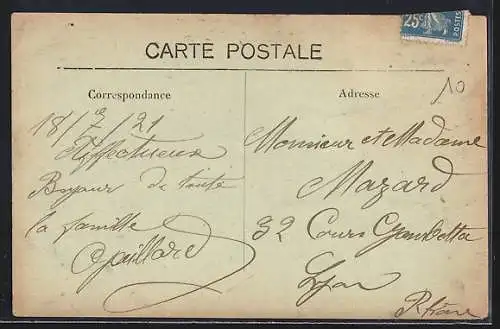 25c POSTES
CARTE POSTALE
Correspondance
Adresse
10
18/7/21
Affectueux
Bonjour de toute
la famille
Gaillard
Monsieur et Madame
Mazard
32 Cours Gambetta
Lyon
Rhône